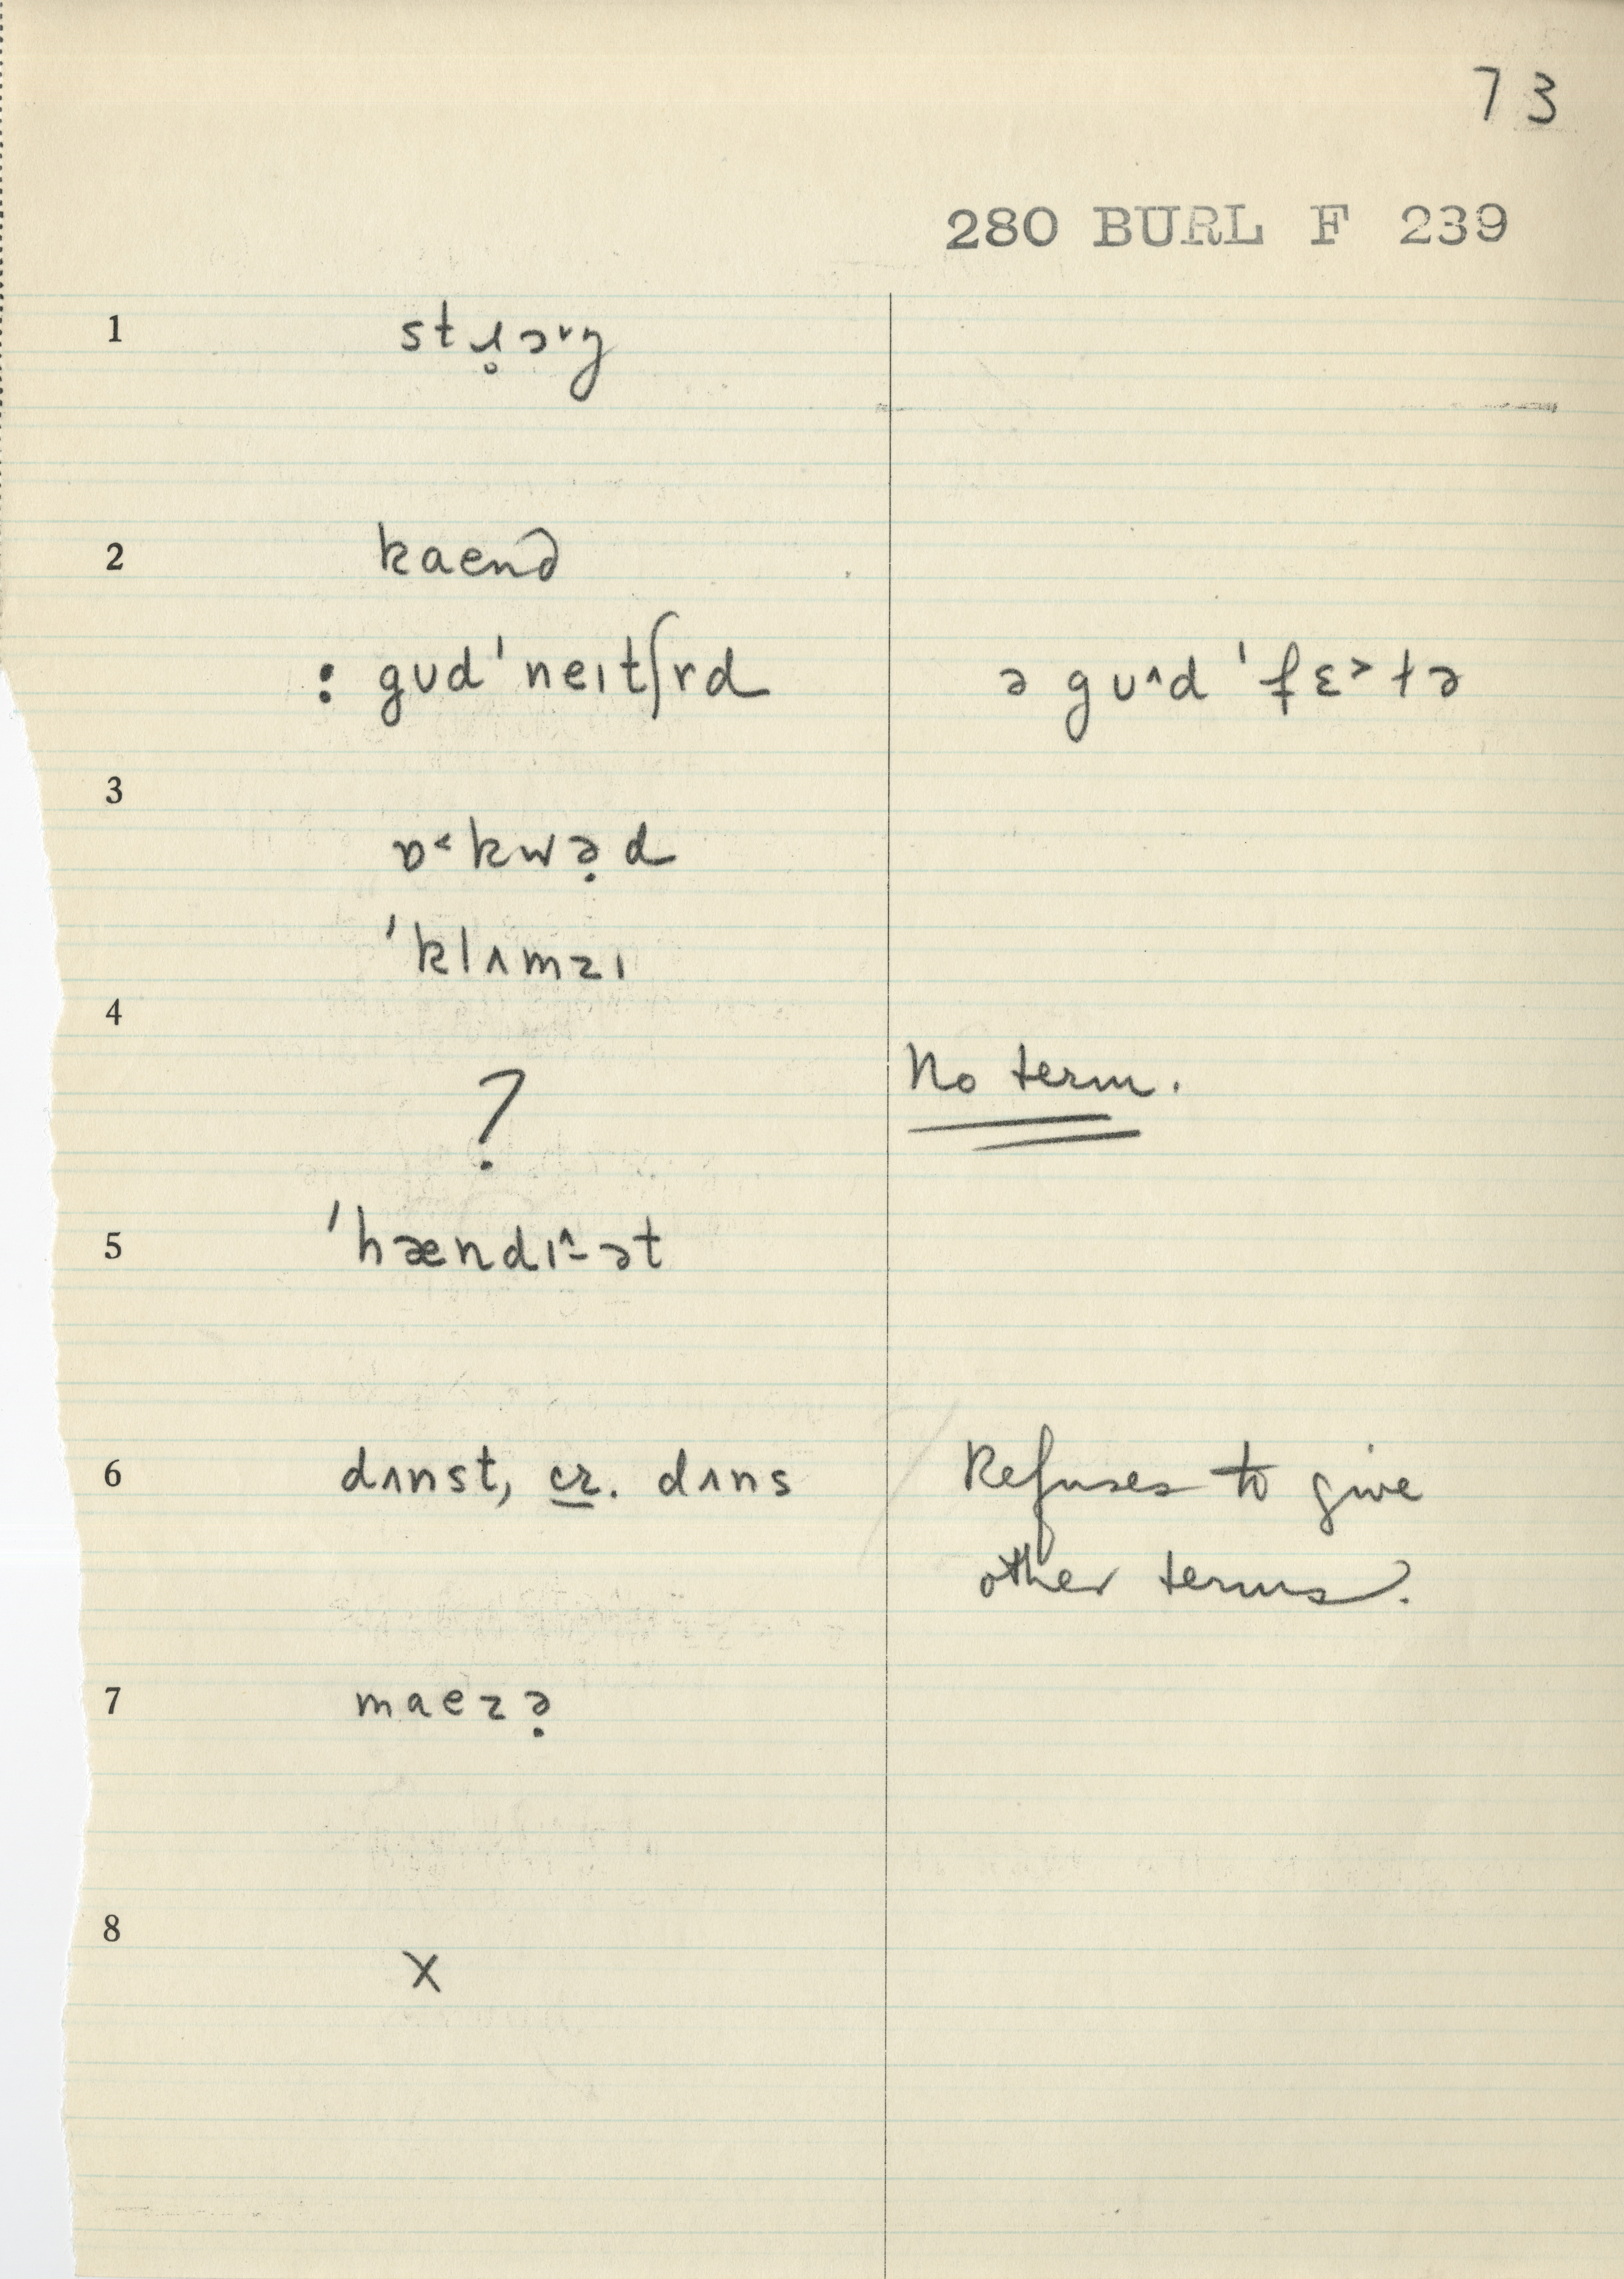 73
280 BURL F 239
1 stɹ̥ɔ˅ŋ
2 kaend
: gᴜd ˈneɪtʃɪd ə gᴜ^d ˈfɛ˃tə
3 ɒ˂kwə̣d
ˈklʌmzɪ
4
? No term.
5 ˈhændɪ^-ət
6 dʌnst, cr. dʌns Refuses to give
other terms.
7 maezə̣
8
X